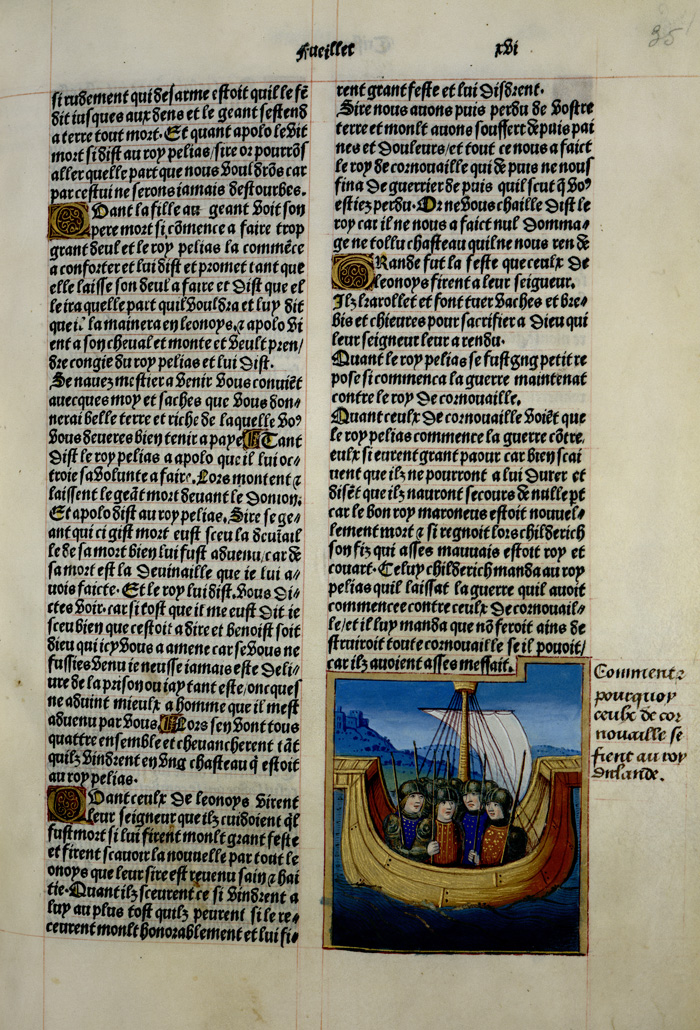 fueillet xvi
35
si rudement qui desarme estoit quil le fẽ
dit iusques aux dens et le geant sestend
a terre tout mort. Et quant apolo le vit
mort si dist au roy pelias/sire or pourrõs
aller quelle part que nous vouldrõs car
par cestui ne serons iamais destourbes.
Quant la fille au geant voit son
pere mort si cõmence a faire trop
grant deul et le roy pelias la commẽce
a conforter et lui dist et promet tant que
elle laisse son deul a faire et dist que el
le ira quelle part quil vouldra et luy dit
que il la mainera en leonoys. ⁊ apolo vi
ent a son cheual et monte et veult pren/
dre congie du roy pelias et lui dist.
Se nauez mistier a venir vous conuiẽt
auecques moy et saches que vous don/
nerai belle terre et riche de laquelle voꝰ
vous deueres bien tenir a paye Tant
dist le roy pelias a apolo que il lui oc/
troie sa volunte a faire. Lors montent ⁊
laissent le geãt mort deuant le donion.
Et apolo dist au roy pelias. Sire se ge/
ant qui ci gist mort eust sceu la deuiail
le de sa mort bien lui fust aduenu/car de
sa mort est la deuinaille que ie lui a/
uois faicte. Et le roy lui dist. vous di/
ctes voir. car si tost que il me eust dit ie
sceu bien que cestoit a dire et benoist soit
dieu qui icy vous a amene car se vous ne
fussies venu ie neusse iamais este deli/
ure de la prison ou iay tant este/oncques
ne aduint mieulx a homme que il mest
aduenu par vous. Lors sen vont tous
quattre ensemble et cheuaucherent tãt
quilz vindrent en vng chasteau q̃ estoit
au roy pelias.
Quant ceulx de leonoys virent
leur seigneur que ilz cuidoient q̃l
fust mort si lui firent moult grant feste
et firent scauoir la nouuelle par tout le
onoys que leur sire est reuenu sain ⁊ hai
tie. Quant ilz sceurent ce si vindrent a
luy au plus tost quilz peurent si le re/
ceurent moult honorablement et lui fi/
rent grant feste et lui disdrent.
Sire nous auons puis perdu de vostre
terre et moult auons souffert depuis pai
nes et douleurs/et tout ce nous a faict
le roy de cornouaille qui depuis ne nous
fina de guerrier depuis quil scut q̃ voꝰ
estiez perdu. Or ne vous chaille dist le
roy car il ne nous a faict nul domma/
ge ne tollu chasteau quil ne nous ren de
Grande fut la feste que ceulx de
leonoys firent a leur seigneur.
Ilz krarollet et font tuer vaches et bre/
bis et chieures pour sacrifier a dieu qui
leur seigneur leur a rendu.
Quant le roy pelias se fust gng petit re
pose si commenca la guerre maintenat
contre le roy de cornouaille.
Quant ceulx de cornouaille voiẽt que
le roy pelias commence la guerre cõtre
eulx si eurent grant paour car bien scai
uent que ilz ne pourront a lui durer et
disẽt que ilz nauront secours de nulle pt
car le bon roy maroneus estoit nouuel/
lement mort ⁊ si regnoit lors childerich
son fiz qui asses mauuais estoit roy et
couart. Celuy childerich manda au roy
pelias quil laissat la guerre quil auoit
commencee contre ceulx de cornouail/
le/et il luy manda que nõ feroit ains de
struiroit toute cornouaille se il pouoit/
car ilz auoient asses meffait.
Comment ⁊
pourquoy
ceulx de cor
nouaille se
fient au roy
dirlande.